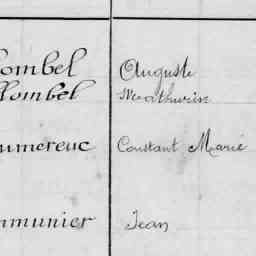 ombel Auguste
lombel Mathurin
umereuc Constant Marie
mmunier Jean